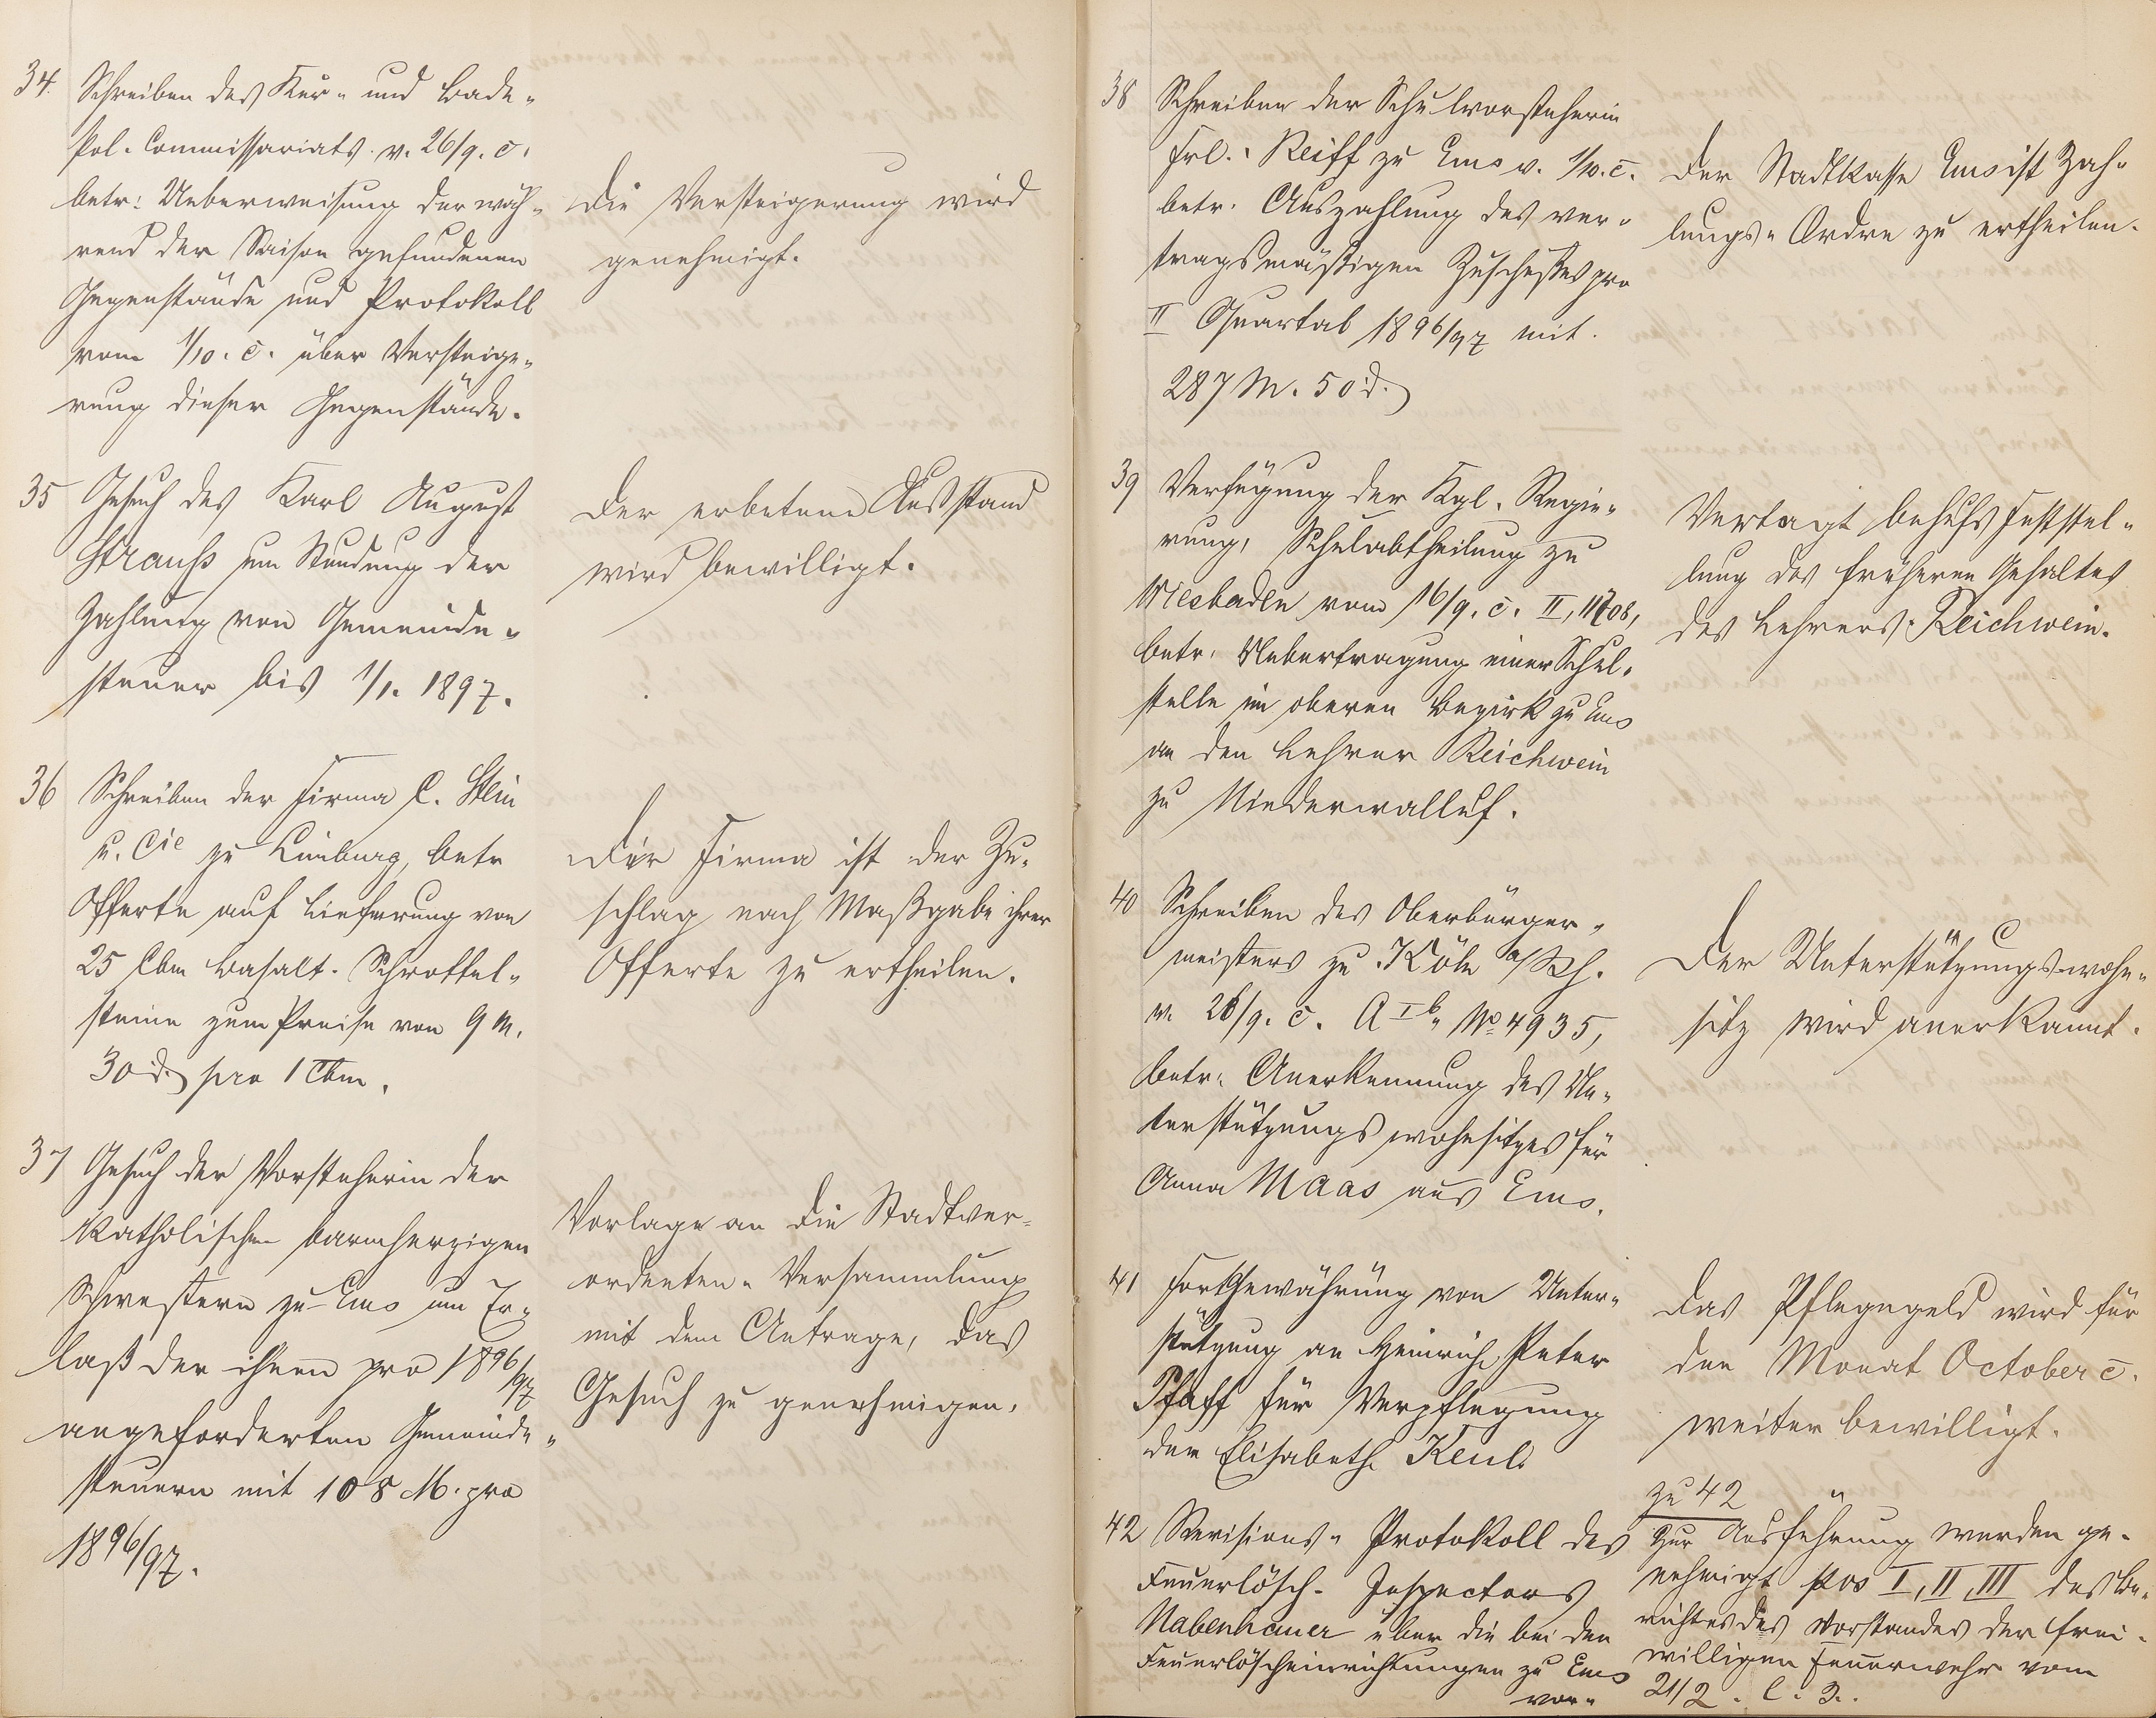 34. Schreiben des Kur- und Bade-
Pol. Commissariats v. 26/9. c.
betr. Ueberweisung der wäh-
rend der Saison gefundenen
Gegenstände und Protokoll
vom 1/10. c. über Versteige-
rung dieser Gegenstände.
Die Versteigerung wird
genehmigt.
35 Gesuch des Karl August
Strauß um Stundung der
Zahlung von Gemeinde-
steuer bis 1/1. 1897.
Der erbetene Ausstand
wird bewilligt.
36 Schreiben der Firma C. Stein
u. Cie zu Limburg, betr
Offerte auf Lieferung von
25 Cbm Basalt-Schrottel-
steine zum Preise von 9 M.
30 d. pro 1 Cbm.
Der Firma ist der Zu-
schlag nach Maßgabe ihrer
Offerte zu ertheilen.
37 Gesuch der Vorsteherin der
Katholischen barmherzigen
Schwestern zu Ems um Er-
laß der ihnen pro 1896/97
angeforderten Gemeinde-
steuern mit 108 M. pro
1896/97.
Vorlage an die Stadtver-
ordneten-Versammlung
mit dem Antrage, das
Gesuch zu genehmigen.
38 Schreiben der Schulvorsteherin
Frl. Reiff zu Ems v. 1/10. c.
betr. Auszahlung des ver-
tragsmäßigen Zuschußes pro
II Quartal 1896/97 mit
287 M. 50 d.
Der Stadtkasse Ems ist Zah-
lungs-Ordre zu ertheilen.
39 Verfügung der Kgl. Regie-
rung, Schulabtheilung zu
Wiesbaden vom 16/9. c. II,
betr. Uebertragung einer Schul-
stelle im oberen Bezirk zu Ems
an den Lehrer Reichwein
zu Niederwalluf.
Vertagt behufs Feststel-
lung des früheren Gehaltes
des Lehrers Reichwein.
40 Schreiben des Oberbürger-
meisters zu Köln a/Rh.
v. 26/9. c. A I b. No 4935,
betr. Anerkennung des Un-
terstützungswohnsitzes für
Anna Maas aus Ems.
Der Unterstützungswohn-
sitz wird anerkannt.
41 Fortgewährung von Unter-
stützung an Heinrich Peter
Pfaff für Verpflegung
der Elisabeth Keul.
Das Pflegegeld wird für
den Monat October c.
weiter bewilligt.
42 Revisions-Protokoll des
Feuerlösch-Inspectors
Nabenhauer über die bei den
Feuerlöscheinrichtungen zu Ems
vor-
zu 42
Zur Ausführung werden ge-
nehmigt pos I, II, III des Be-
richtes des Vorstandes der frei-
willigen Feuerwehr vom
21/2.